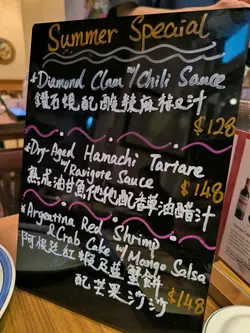 Summer Special
+Diamond Clam w/ Chili Sauce
鑽石蜆配酸辣麻椒汁
$128
+Dry-Aged Hamachi Tartare
w/ Ravigote Sauce
$148
熟成油甘魚他他配香草油醋汁
*Argentina Red Shrimp
& Crab Cake w/ Mango Salsa
阿根廷紅蝦及蓝蟹餅
配芒果沙沙
$148